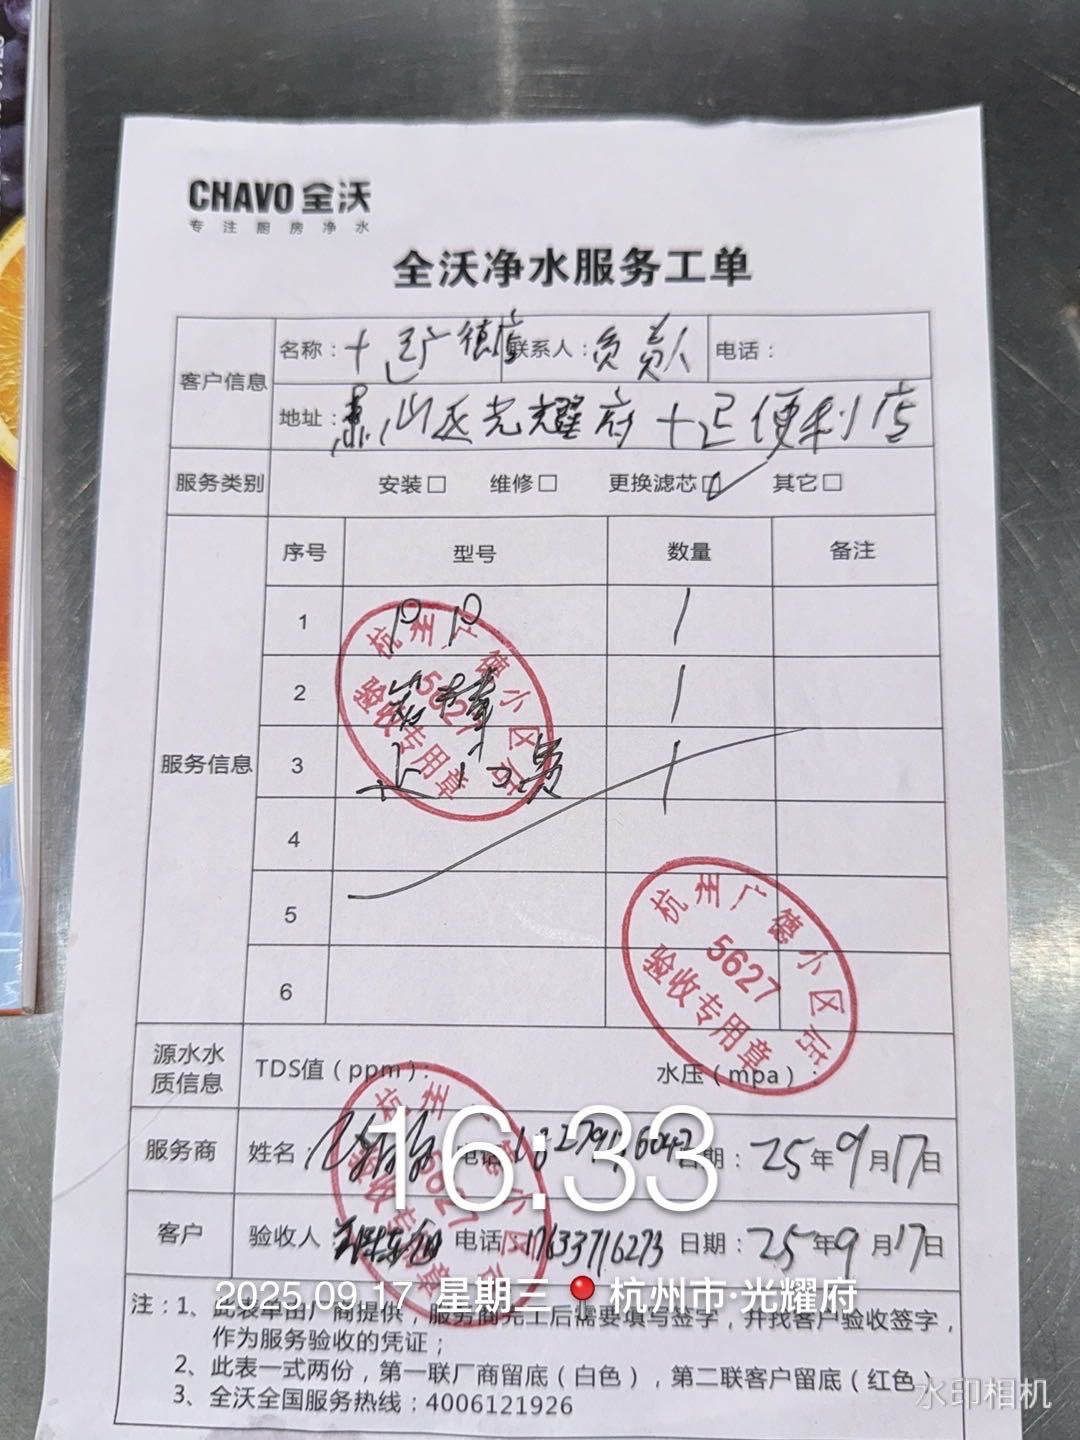 CHAVO 全沃
专注厨房净水
全沃净水服务工单
客户信息 名称：十足广德店 联系人：负责人 电话：
地址：萧山区光耀府十足便利店
服务类别 安装□ 维修□ 更换滤芯☑ 其它□
服务信息 序号 型号 数量 备注
1 PP 1
2 1
3 1
4
5
6
杭州广德小区店
5627
验收专用章
杭州广德小区店
5627
验收专用章
源水水质信息 TDS值（ppm）： 水压（mpa）：
服务商 姓名： 电话 日期：25年9月17日
客户 验收人 电话 17633716273 日期：25年9月17日
杭州 小区店
5627
验收专用章
16:33
2025.09.17 星期三 杭州市·光耀府
注：1、此表单由厂商提供，服务商完工后需要填写签字，并找客户验收签字，
作为服务验收的凭证；
2、此表一式两份，第一联厂商留底（白色），第二联客户留底（红色
3、全沃全国服务热线：4006121926
水印相机